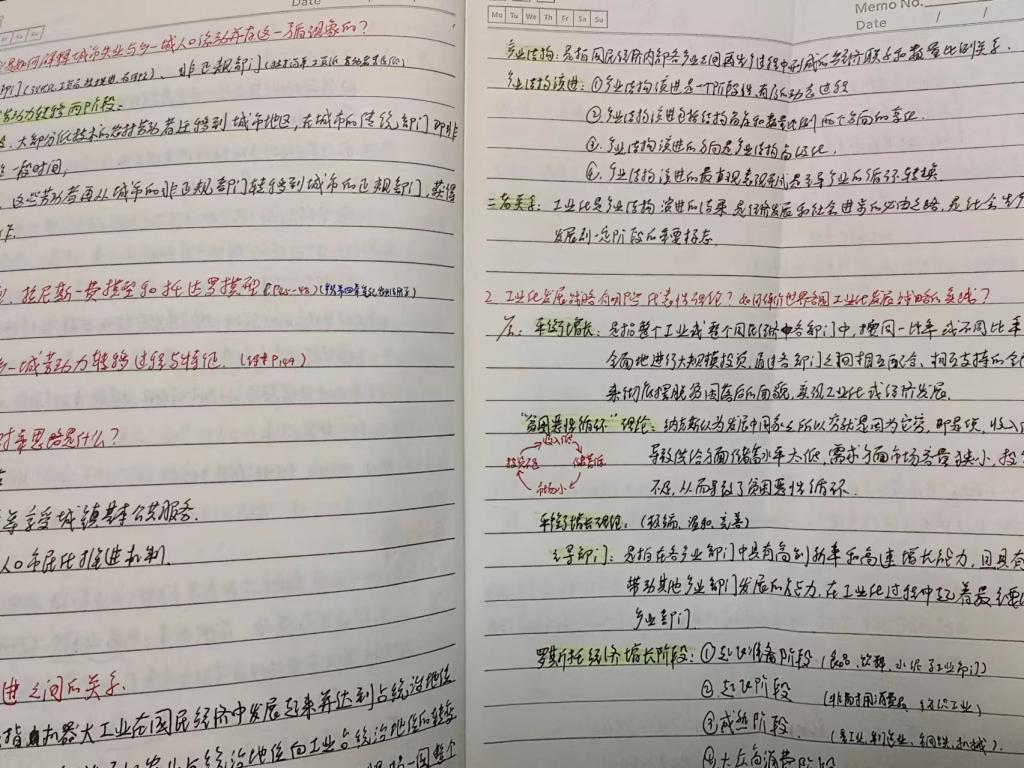 Date
是如何解释城市失业与乡-城人口流动并存在这一矛盾现象的?
非正规部门
劳动力转移两阶段:
大部分低技术的农村劳动者迁移到城市地区,在城市的传统部门即非
一段时间,
这些劳动者再从城市的非正规部门转移到城市的正规部门,获得
拉尼斯-费模型和托达罗模型
乡-城劳动力转移过程与特征.
对策思路是什么?
享受城镇基本公共服务.
人口市民化推进机制.
进之间的关系.
指由机器大工业在国民经济中发展起来并达到占统治地位
占统治地位向工业占统治地位的转变
Mo Tu We Th Fr Sa Su
Memo No.
Date / /
产业结构:是指国民经济内部各产业之间再生产过程中形成的经济联系和数量比例关系.
产业结构演进:①产业结构演进是一个阶段性有序动态过程
②产业结构演进包括结构高度和数量比例两个方向的变化.
③.产业结构演进的方向是产业结构高级化.
④.产业结构演进的最直观表现形式是主导产业的循环转换.
三者关系:工业化是产业结构演进的结果是经济发展和社会进步的必由之路,是社会生产
发展到一定阶段的重要标志.
2.工业化发展战略有哪些代表性理论?如何评价世界各国工业化发展战略的实践?
答:平衡增长:是指整个工业或整个国民经济中各部门中,按同一比率或不同比率
全面地进行大规模投资,通过各部门之间相互配合、相互支持的全
来彻底摆脱贫困落后的面貌,实现工业化或经济发展.
"贫困恶性循环"理论:纳克斯认为发展中国家之所以穷就是因为它穷,即是说,收入
收入低
储蓄低
市场小
投资不足
导致供给方面储蓄水平太低,需求方面市场容量狭小,投资
不足,从而导致了贫困恶性循环.
平衡增长理论:(极端、温和、完善)
主导部门:是指在各产业部门中具有高创新率和高速增长能力,且具有
带动其他产业部门发展的能力,在工业化过程中起着最重要的
产业部门.
罗斯托经济增长阶段:①起飞准备阶段(食品、饮料、水泥等工业部门)
②起飞阶段 (非耐用消费品 纺织工业)
③成熟阶段 (重工业,制造业,钢铁,机械).
④大众高消费阶段